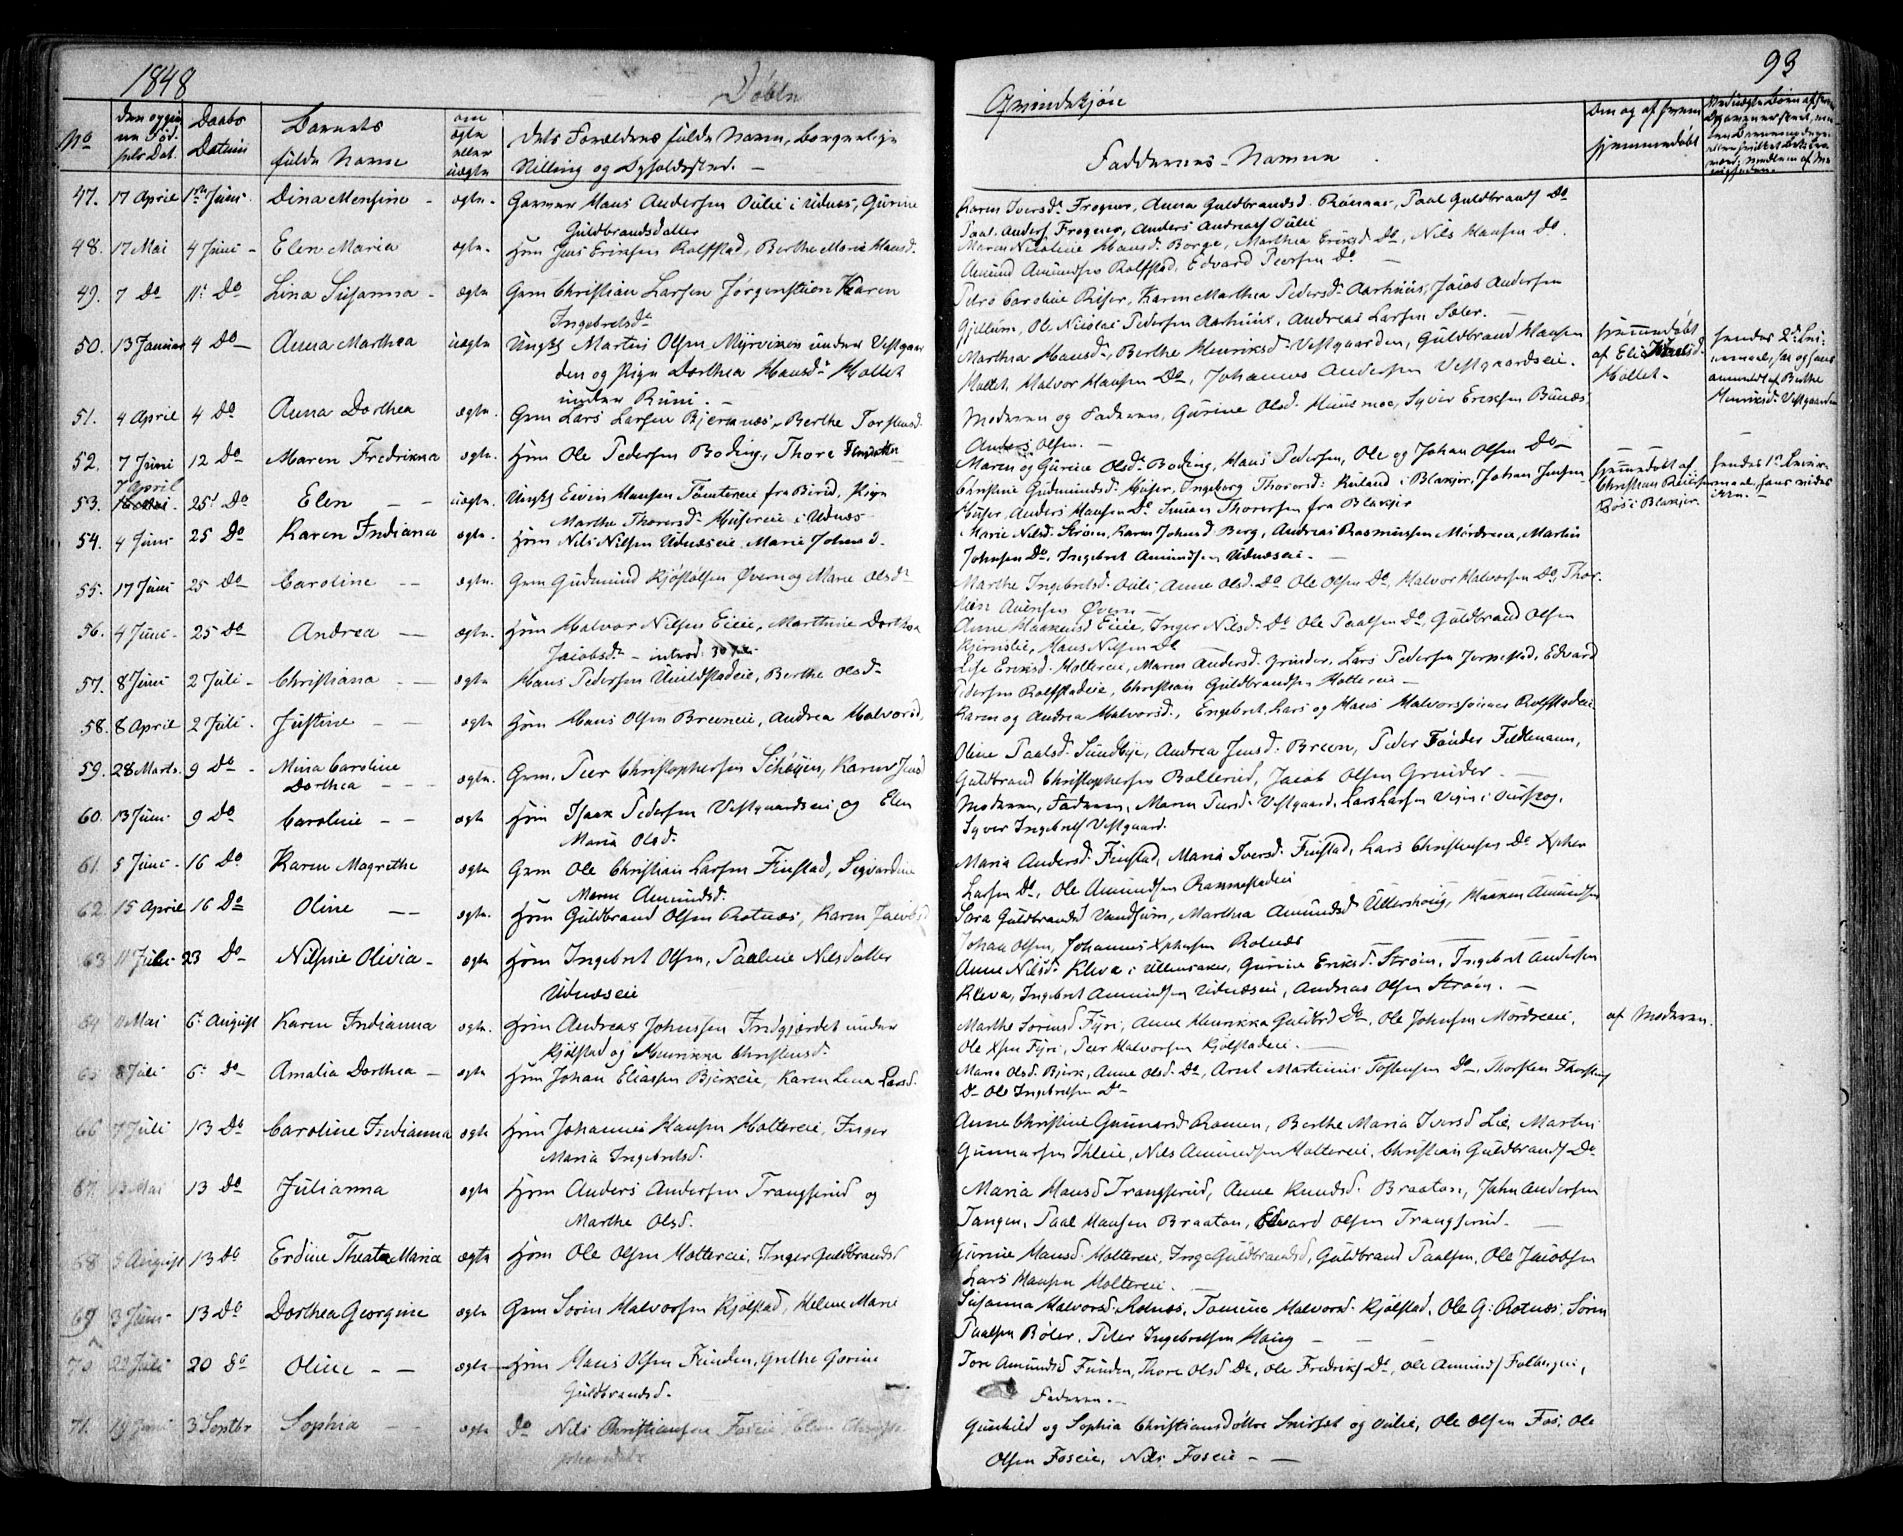 1848
Døbte
Qvindekjøn
93
No
Daabs Datum
Barnets fulde Navn
om ægte eller uægte
dets Forældres fulde Navn, Borgerlige Stilling og Opholdssted.
Faddernes Navne
hjemmedøbt
47. 17 April 1ste Juni Dina Mensine ægte Hans Andersen Oulie i Udnæs, Gurine
Guldbrandsdatter
Karen Iversd. Frogner, Anna Guldbrandsd. Rønaas, Paal Guldbrands. Do
Paal Anders. Frogner, Anders Andreas. Oulie
48. 17 Mai 4 Juni Elen Maria ægte Hm Jens Eriksen Rolfstad, Berthe Marie Hansd.
Maren Nicoline Hansd. Borge, Marthea Eriksd. Do, Nils Hansen Do.
Amund Amundsen Rolfstad, Edvard Pedersen Do
49. 7 Do 11 Do Lina Susanna ægte Gm Christian Larsen Jørgenstuen Karen
Ingebretsd.
Caroline Riser, Karen Marthea Pedersd. Aarhuus, Jacob Andersen
Gjellum, Ole Nicolai Pedersen Aarhuus, Andreas Larsen Sæter.
50. 13 Januar 4 Do Anna Marthea uægte Ungk. Martin Olsen Myrvold under Vestgaar
den og Pige Dorthea Hansd. Holtet
under Runi.
Marthea Hansd., Berthe Henriksd. Vestgaarden, Guldbrand Hansen
Holtet, Halvor Hansen Do, Johannes Andersen Vestgaardseie.
hjemmedøbt
af Elis Hansd.
Holtet
hendes 2det Lei
ermaal, han og hans
anmeldt af Berthe
Henriksd. Vestgaarden
51. 4 April 4 Do Anna Dorthea ægte Gm Lars Larsen Bjermæs, Berthe Torstensd.
Moderen og Faderen, Gurine Olsd. Huusmoe, Syver Eriksen Bunæs
Anders Olsen.
52. 7 Juni 12 Do Maren Fredrikka ægte Hm Ole Pedersen Boding, Thore
Maren og Gurine Olsd. Boding, Hans Pedersen, Ole og Johan Olsen Do
53. 7 April 25 Do Elen uægte Ungk. Even Hansen Tomtereie fra Birid, Pige
Marthe Thoresd. Husereie i Udnæs
Christine Gudmundsd. Huser, Ingeborg Thoresd. Ruland i Blakjer, Johan Jensen
Huser, Anders Hansen Do Simen Thoresen fra Blakjer
hjemmedøbt af
Christian
i Blakjer.
hendes 1ste Leier
maal, hans vides
ikke.
54. 4 Juni 25 Do Karen Indiana ægte Hm Nils Nilsen Udnæseie, Marie Johnsd.
Marie Nilsd. Strøm, Karen Johnsd. Berg, Andreas Rasmussen Mordreeie, Martin
Johnsen Do, Ingebret Amundsen Udnæseie
55. 17 Juni 25 Do Caroline ægte Gm Gudmund Kjøstolsen Øvern og Marie Olsd.
Marthe Ingebretsd. Oulie, Anne Olsd. Do Ole Olsen Do, Halvor Halvorsen Do, Thor
Øvern
56. 4 Juni 25 Do Andrea ægte Hm Halvor Nilsen Eieie, Marthine Dorthea
Jacobsd. introd: 30 Juli
Anne Haakensd. Eieie, Inger Nilsd. Do Ole Paalsen Do, Guldbrand Olsen
Kjernslie, Hans Nilsen Do
57. 8 Juni 2 Juli Christiana ægte Hans Pedersen Unildstadeie, Berthe Olsd.
Lise Eriksd. Holtereie, Maren Andersd. Grinder, Lars Pedersen Jorpestad, Edvard
Pedersen Rolfstadeie, Christian Guldbrandsen Holtereie
58. 8 April 2 Juli Justine ægte Hm Hans Olsen Breeneie, Andrea Halvorsd.
Karen og Andrea Halvorsd., Engebret, Lars og Hans Halvorsønner Rolfstadeie
59. 28 Marts 9 Do Mina Caroline
Dorthea ægte Gm. Peer Christophersen Schøyen, Karen Jensd.
Oline Paalsd. Sundbye, Andrea Jensd. Breen, Peder Tønder Fieldmann,
Guldbrand Christophersen Bollerud, Jacob Olsen Grinder
60. 13 Juni 9 Do Caroline ægte Hm Isaak Pedersen Vestgaardseie og Elen
Maria Olsd.
Moderen, Faderen, Maren Peersd. Vestgaard, Lars Larsen Vigen i Ourskog,
Syver Ingebrets. Vestgaard.
61. 5 Juni 16 Do Karen Magrethe ægte Gm Ole Christian Larsen Finstad, Sigvardine
Marie Amundsd.
Maria Andersd. Finstad, Maria Iversd. Finstad, Lars Christensen Do Xpher
Larsen Do, Ole Amundsen Rammestadeie
62. 15 April 16 Do Oline ægte Hm Guldbrand Olsen Rotnæs, Karen Jacobsd.
Sara Guldbrandsd. Vandsum, Marthea Amundsd. Ullershoug, Haaken Amundsen
Johan Olsen, Johannes Xphersen Rotnæs
63 11 Juli 23 Do Nilssie Olivia ægte Hm Ingebret Olsen, Pauline Nilsdatter
Udnæseie
Anne Nilsd. Kleva i Ullensaker, Gurine Eriksd. Strøm, Ingebret Andersen
Kleva, Ingebret Amundsen Udnæseie, Andreas Olsen Strøm.
64 Mai 6. August Karen Indianna ægte Hm Andreas Johnssen Indgjærdet under
Kjølstad og Henrikke Christensd.
Marthe Sørensd. Fyri, Anne Henrikka Guldbrd. Do, Ole Johnsen Mordreeie,
Ole Xpen Fyri, Peer Halvorsen Kjølstadeie.
af Moderen.
65 8 Juli 6. Do Amalia Dorthea ægte Hm Johan Eliassen Bjerkeie, Karen Lena Larsd.
Maria Olsd. Bjerk, Anne Olsd. Do, Arnt Martinius Tostensen Do, Thorsten Thorstens.
Do Ole Ingebretsen Do
66 7 Juli 13 Do Caroline Indianna ægte Hm Johannes Hansen Holtereie, Inger
Maria Ingebretsd.
Anne Christine Gunnarsd. Romen, Berthe Maria Iversd. Lie, Martin
Gunnarsen Ihleie, Nils Amundsen Holtereie, Christian Guldbrands. Do
67. 13 Mai 13 Do Julianna ægte Hm Anders Andersen Trangsrud og
Marthe Olsd.
Maria Hansd. Trangsrud, Anne Knudsd. Braaten, John Andersen
Tangen, Paal Hansen Braaten, Edvard Olsen Trangsrud.
68 5 August 13 Do Erdine Theata Maria ægte Hm Ole Olsen Holtereie, Inger Guldbrandsd.
Gurine Hansd. Holtereie, Inge Guldbrandsd., Guldbrand Paalsen, Ole Jacobsen
Lars Hansen Holtereie.
69 3 Juni 13 Do Dorthea Georgine ægte Gm Søren Halvorsen Kjølstad, Helene Marie
Susanna Halvorsd. Rotnæs, Tomine Halvorsd. Kjølstad, Ole G. Rotnæs, Søren
Paalsen Bøler, Peter Ingebretsen Haug
70 22 Juli 20 Do Oline ægte Hm Hans Olsen Funden, Grethe Gorine
Guldbrandsd.
Tore Amundsd. Funden, Thore Olsd. Do, Ole Fredriks. Do, Ole Amunds. Folberg,
Faderen.
71. 19 Juni 3 Septbr Sophia ægte Do Nils Christiansen Foseie, Elen
Gunhild og Sophia Christiansdøttre Smisset og Oulie, Ole Olsen Fos, Ole
Olsen Foseie, Nils Foseie